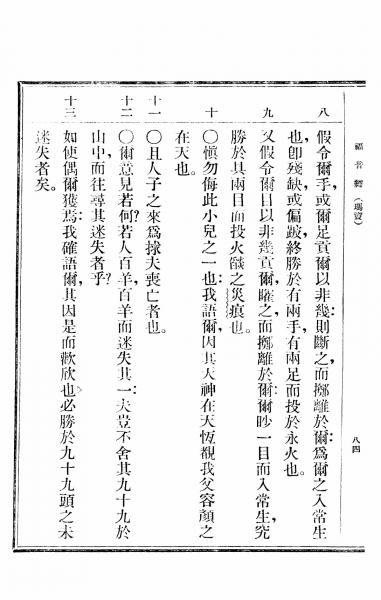 福音經(瑪竇)
八四
八 假令爾手,或爾足貢爾以非幾,則斷之,而擲離於爾,爲爾之入常生
也,卽殘缺,或偏跛,終勝於有兩手,有兩足而投於永火也。
九 又假令爾目以非幾貢,矐之,而擲離於爾;爾眇一目而入常生,究
勝於具兩目而投火獄之災痕也。
十 〇愼勿侮此小兒之一也;我語爾,因其天神在天恆覩我父容顏之
在天也。
十一 〇且人子之來爲捄夫喪亡者也。
十二 〇爾意見若何?若人百羊,百羊而迷失其一,夫豈不舍其九十九於
山中,而往尋其迷失者乎?
十三 如使偶爾獲焉:我確語爾,其因是而歡欣也,必勝於九十九頭之未
迷失者矣。